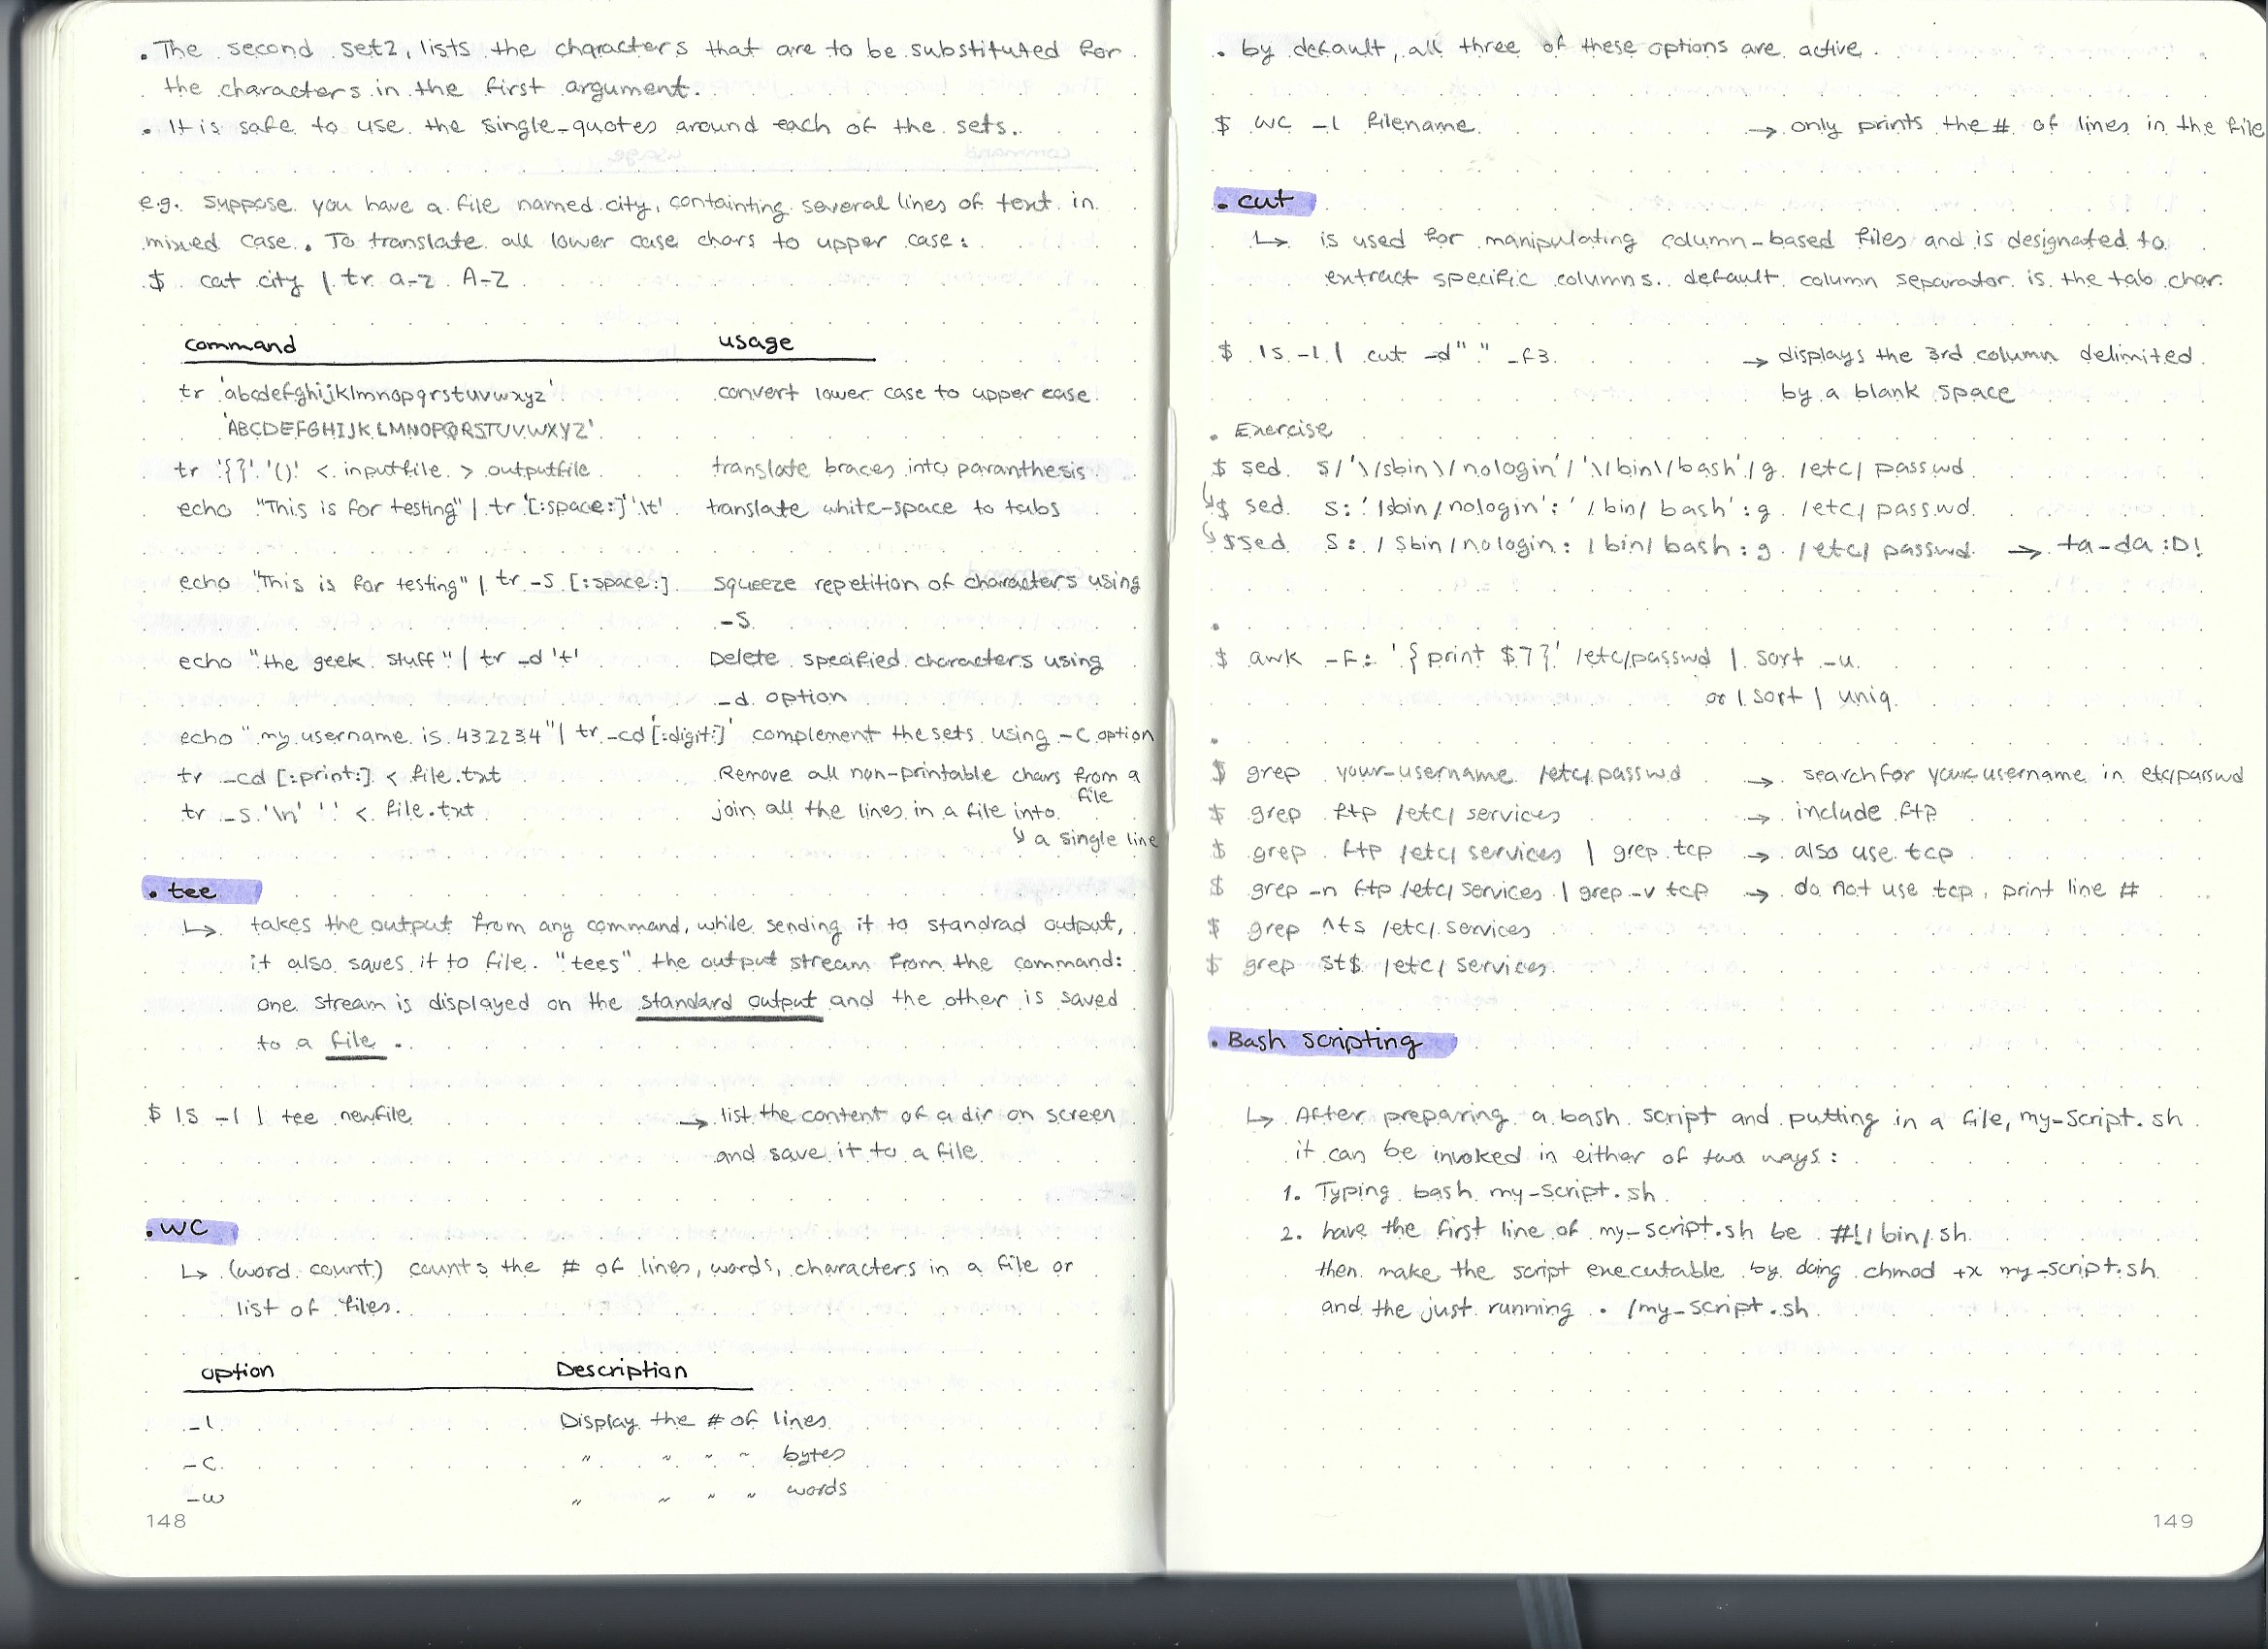 . The second set2, lists the characters that are to be substituted for
the characters in the first argument.
. It is safe to use the single-quotes around each of the sets.
e.g. suppose you have a file named city, containting several lines of text in
mixed case. To translate all lower case chars to upper case:
$ cat city | tr a-z A-Z
command usage
tr 'abcdefghijklmnopqrstuvwxyz' convert lower case to upper case
'ABCDEFGHIJKLMNOPQRSTUVWXYZ'
tr '{}' '()' < inputfile > outputfile translate braces into paranthesis
echo "This is for testing" | tr '[:space:]' '\t' translate white-space to tabs
echo "This is for testing" | tr -s [:space:] squeeze repetition of characters using
-s
echo "the geek stuff" | tr -d 't' Delete specified characters using
-d option
echo "my username is 432234" | tr -cd '[:digit:]' complement the sets using -c option
tr -cd [:print:] < file.txt Remove all non-printable chars from a
file
tr -s '\n' ' ' < file.txt join all the lines in a file into
↳ a single line
. tee
↳ takes the output from any command, while sending it to standrad output,
it also saves it to file. "tees" the output stream from the command:
one stream is displayed on the standard output and the other is saved
to a file.
$ ls -l | tee newfile → list the content of a dir on screen
and save it to a file
. wc
↳ (word count) counts the # of lines, words, characters in a file or
list of files.
option Description
-l Display the # of lines
-c " " " " bytes
-w " " " " words
148
. by default, all three of these options are active.
$ wc -l filename → only prints the # of lines in the file
. cut
↳ is used for manipulating column-based files and is designated to
extract specific columns. default column separator is the tab char.
$ ls -l | cut -d" " -f3 → displays the 3rd column delimited
by a blank space
. Exercise
$ sed s/'\/sbin\/nologin'/'\/bin\/bash'/g /etc/passwd
↳ $ sed s:'/sbin/nologin':'/bin/bash':g /etc/passwd
↳ $ sed s:/sbin/nologin:/bin/bash:g /etc/passwd → ta-da :D!
.
$ awk -F: '{print $7}' /etc/passwd | sort -u
or | sort | uniq
.
$ grep your-username /etc/passwd → search for your username in etc/passwd
$ grep ftp /etc/services → include ftp
$ grep ftp /etc/services | grep tcp → also use tcp
$ grep -n ftp /etc/services | grep -v tcp → do not use tcp, print line #
$ grep ^ts /etc/services
$ grep st$ /etc/services
. Bash scripting
↳ After preparing a bash script and putting in a file, my-script.sh
it can be invoked in either of two ways:
1. Typing bash my-script.sh
2. have the first line of my-script.sh be #!/bin/sh
then make the script executable by doing chmod +x my-script.sh
and the just running ./my-script.sh
149